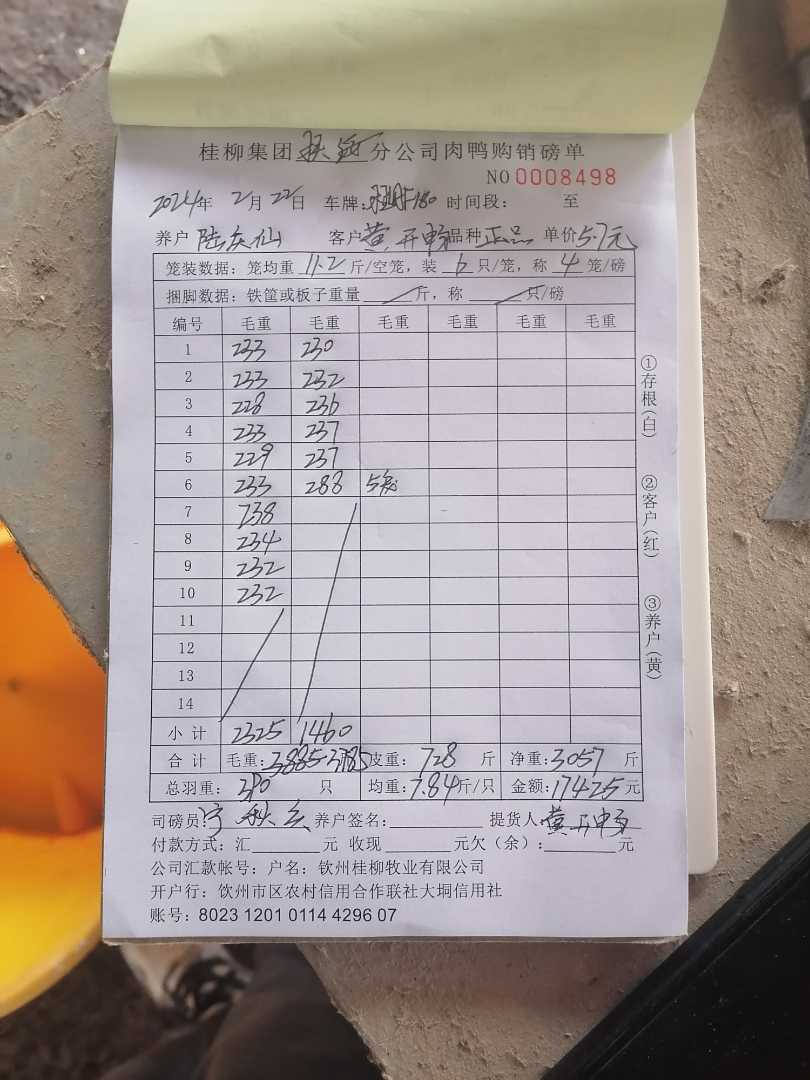 桂柳集团 分公司肉鸭购销磅单
NO 0008498
2024年 2月 22日 车牌: 180 时间段: 至
养户 陆庆仙 客户 黄开畅 品种 正品 单价 5.7元
笼装数据: 笼均重 11.2 斤/空笼, 装 6 只/笼, 称 4 笼/磅
捆脚数据: 铁筐或板子重量 斤, 称 只/磅
编号 毛重 毛重 毛重 毛重 毛重 毛重
1 233 230
2 233 232
3 228 236
4 233 237
5 229 237
6 233 288 5笼
7 238
8 234
9 232
10 232
11
12
13
14
小计 2325 1460
合计 毛重: 3885-3785 皮重: 728 斤 净重: 3057 斤
总羽重: 390 只 均重: 7.84斤/只 金额: 17425元
司磅员: 养户签名: 提货人 黄开畅
付款方式: 汇 元 收现 元欠(余): 元
公司汇款帐号: 户名: 钦州桂柳牧业有限公司
开户行: 饮州市区农村信用合作联社大垌信用社
账号: 8023 1201 0114 4296 07
①存根(白)
②客户(红)
③养户(黄)